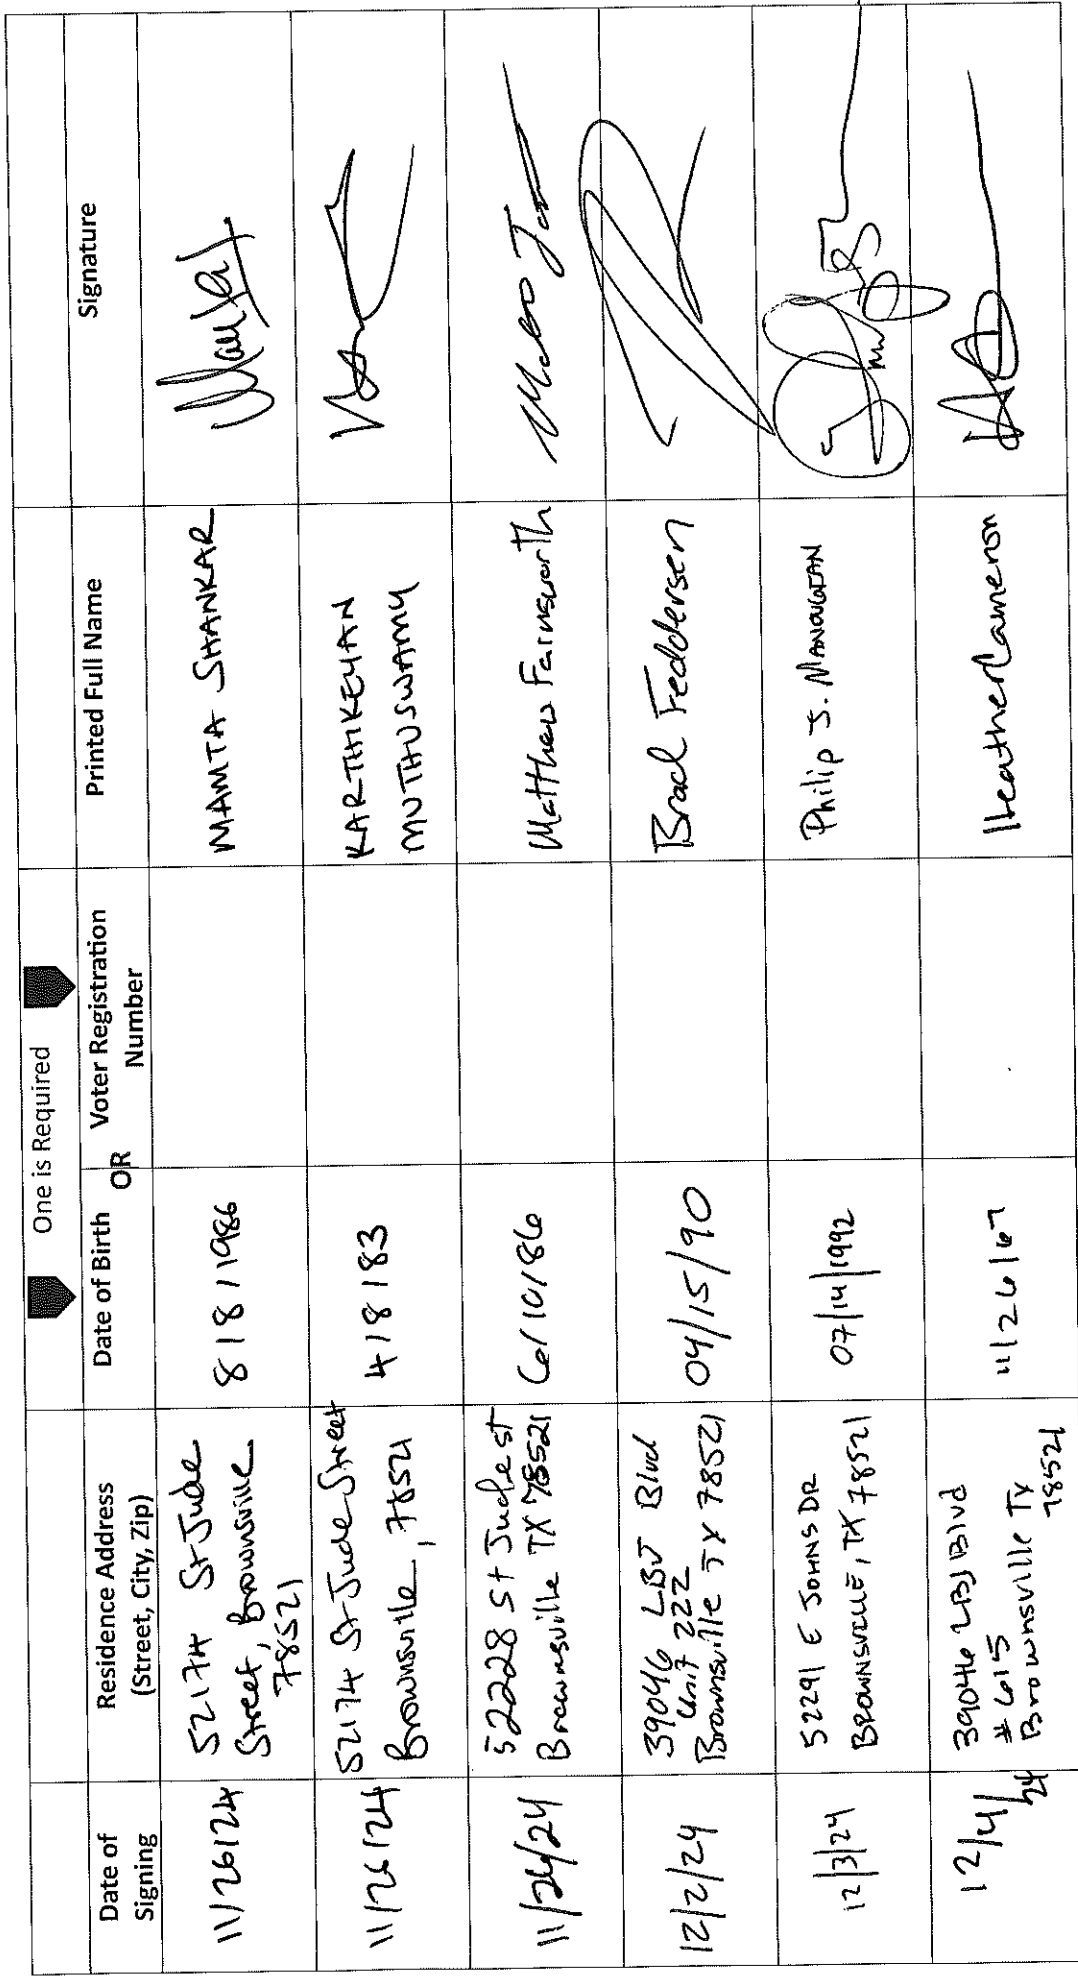 One is Required
Date of Signing
Residence Address (Street, City, Zip)
Date of Birth
OR
Voter Registration Number
Printed Full Name
Signature
11/26/24
52174 St Jude
Street, Brownsville
78521
8/8/1986
MAMTA SHANKAR
11/26/24
52174 St Jude Street
Brownsville, 78521
4/8/83
KARTHIKEYAN
MUTHUSWAMY
11/26/24
52228 St Jude st
Brownsville TX 78521
6/10/86
Matthew Farnsworth
12/2/24
39046 LBJ Blvd
Unit 222
Brownsville TX 78521
04/15/90
Brad Feddersen
12/3/24
52291 E JOHNS DR
BROWNSVILLE, TX 78521
07/14/1992
Philip J. MANOUGIAN
12/4/24
39046 LBJ Blvd
#615
Brownsville Tx
78521
11/26/67
Heather Cameron